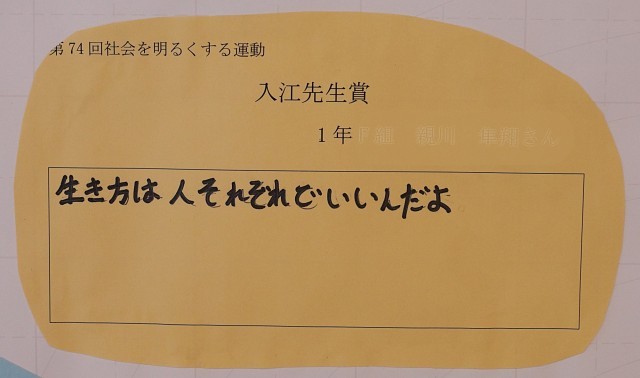 第74回社会を明るくする運動
入江先生賞
1年
生き方は人それぞれでいいんだよ